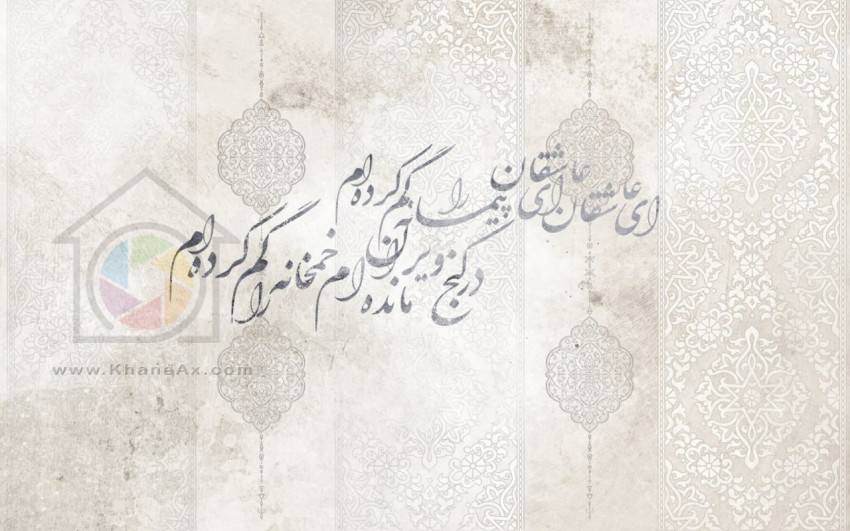 ای عاشقان ای عاشقان پیمانه را گم کرده‌ام
در کنج ویران مانده‌ام خمخانه را گم کرده‌ام
www.KhaneAx.com